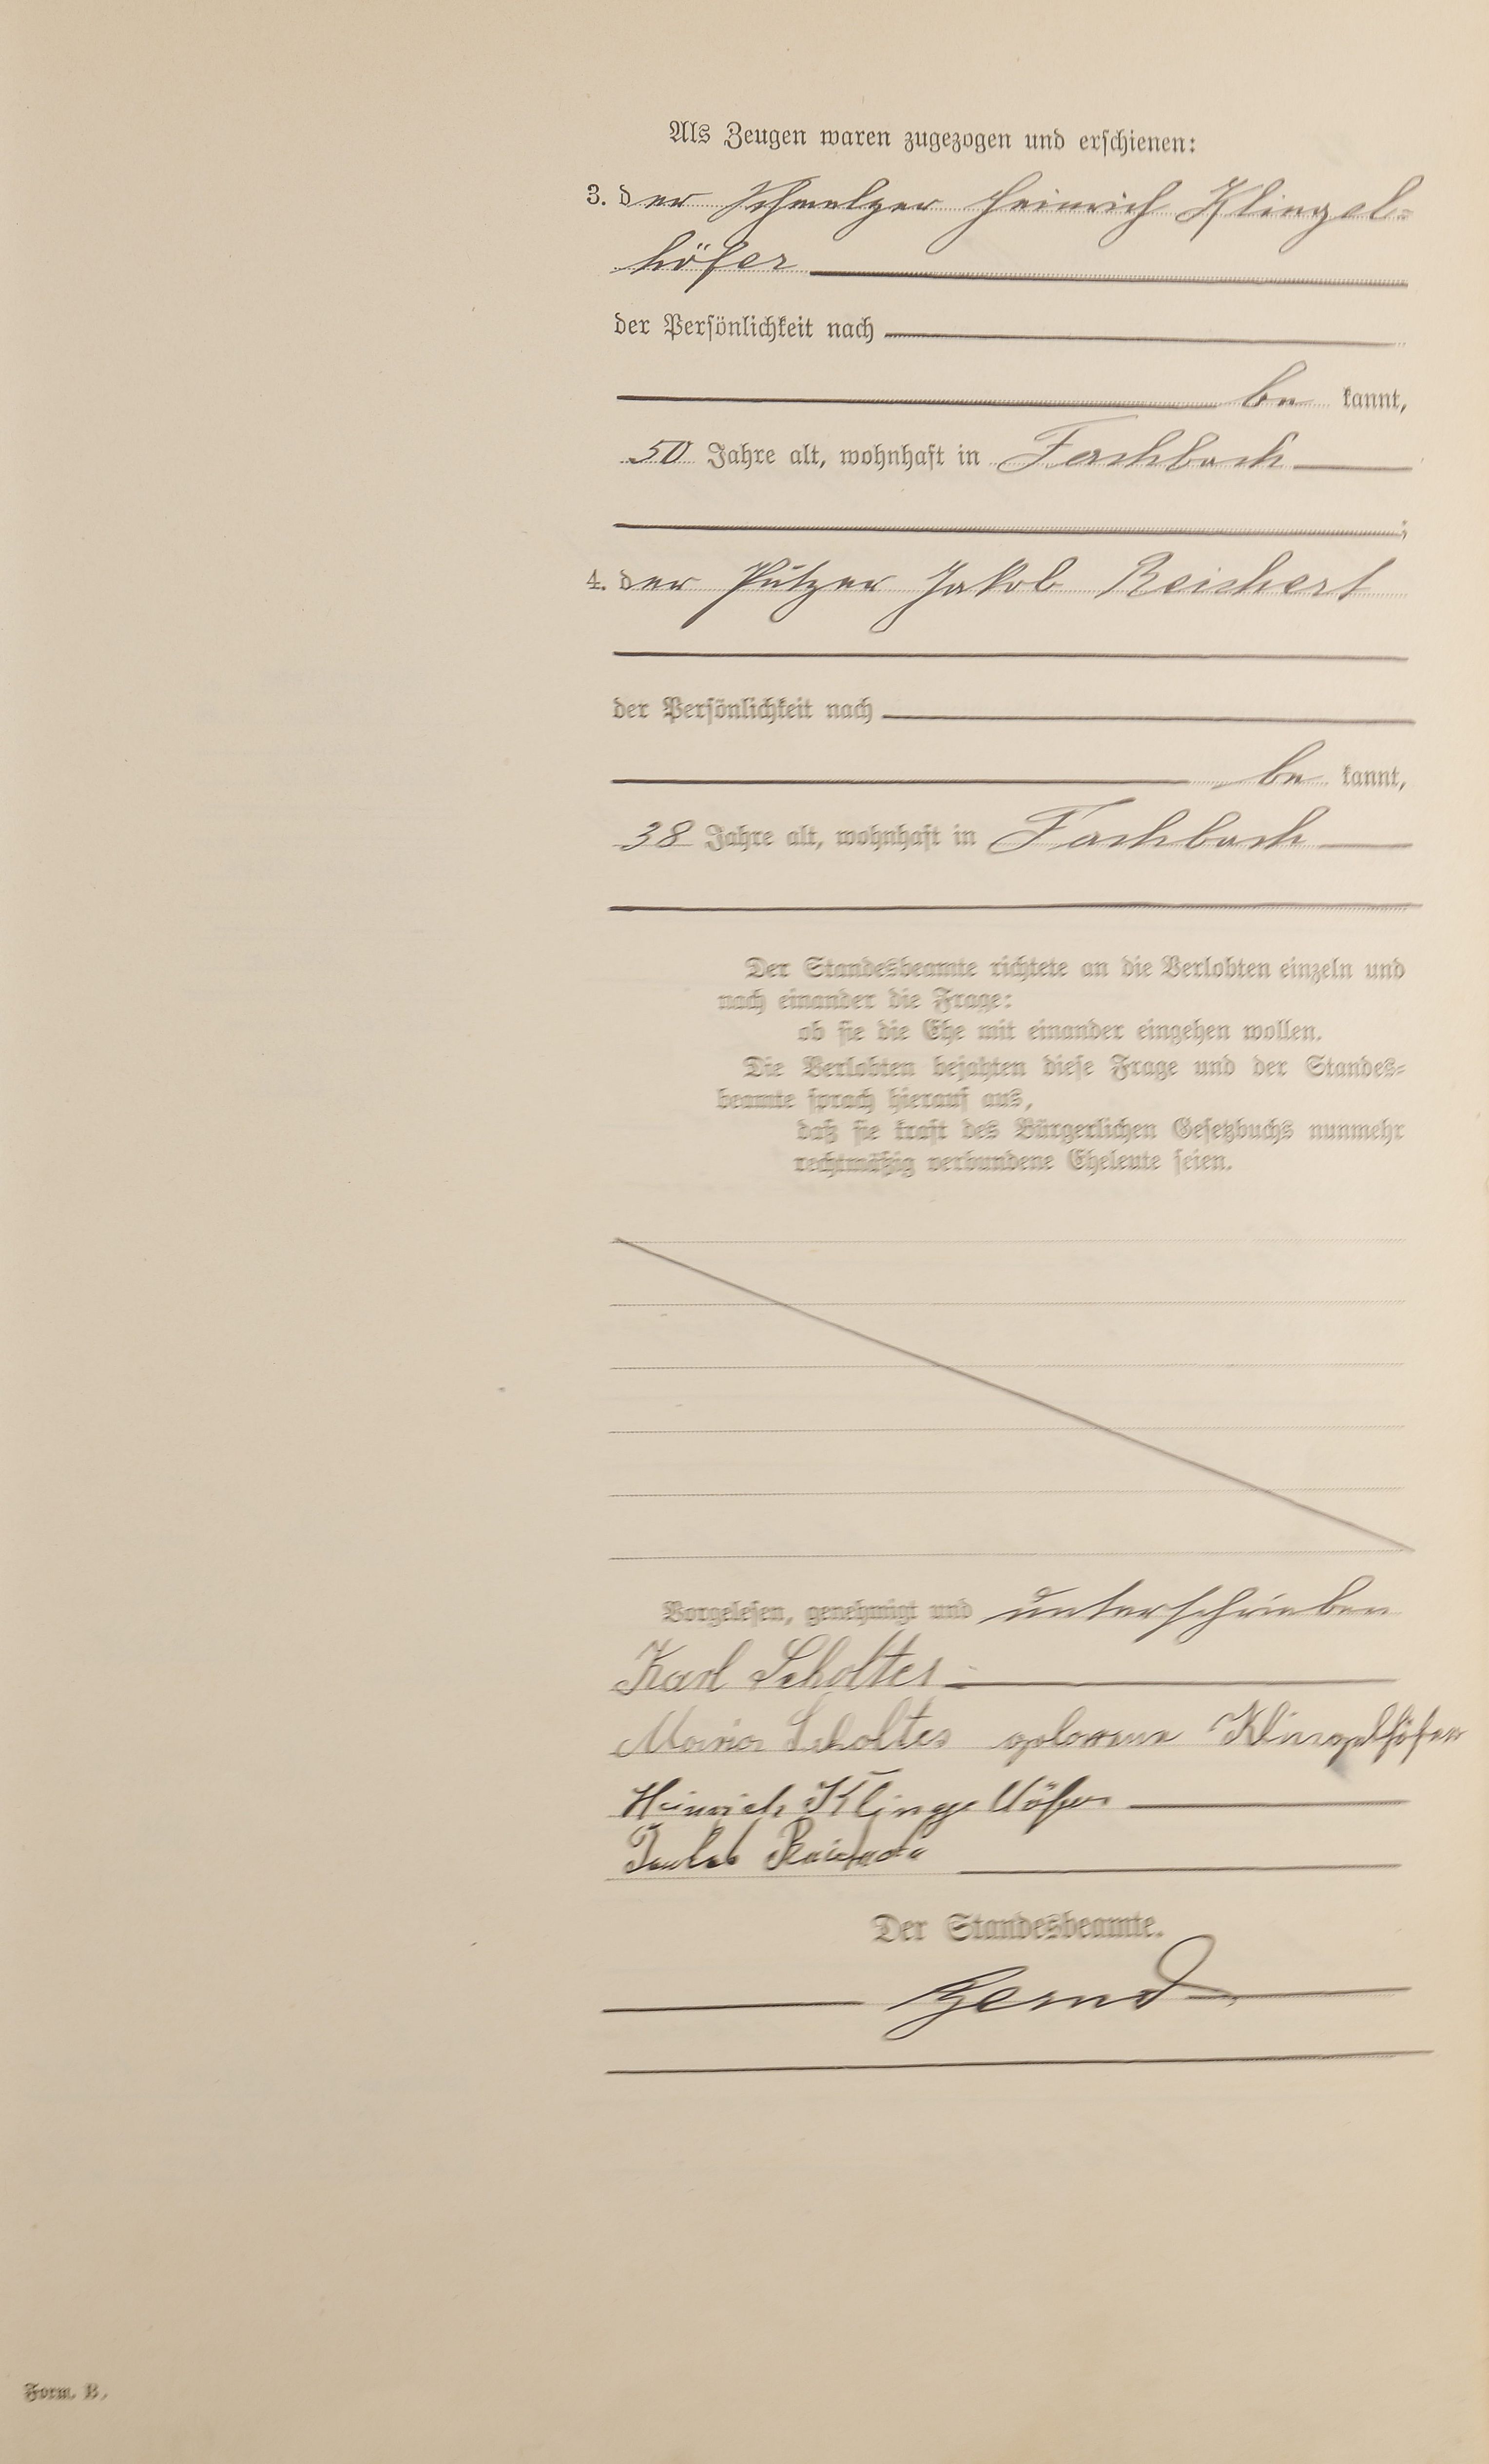 Als Zeugen waren zugezogen und erschienen:
3. der Schmelzer Heinrich Klingel=
höfer
der Persönlichkeit nach
be kannt,
50 Jahre alt, wohnhaft in Fachbach
;
4. der Putzer Jakob Reichert
der Persönlichkeit nach
be kannt,
38 Jahre alt, wohnhaft in Fachbach
Der Standesbeamte richtete an die Verlobten einzeln und
nach einander die Frage:
ob sie die Ehe mit einander eingehen wollen.
Die Verlobten bejahten diese Frage und der Standes=
beamte sprach hierauf aus,
daß sie kraft des Bürgerlichen Gesetzbuchs nunmehr
rechtmäßig verbundene Eheleute seien.
Vorgelesen, genehmigt und unterschrieben
Karl Scholtes
Maria Scholtes geborene Klingelhöfer
Heinrich Klingelhöfer
Der Standesbeamte.
Form. B.